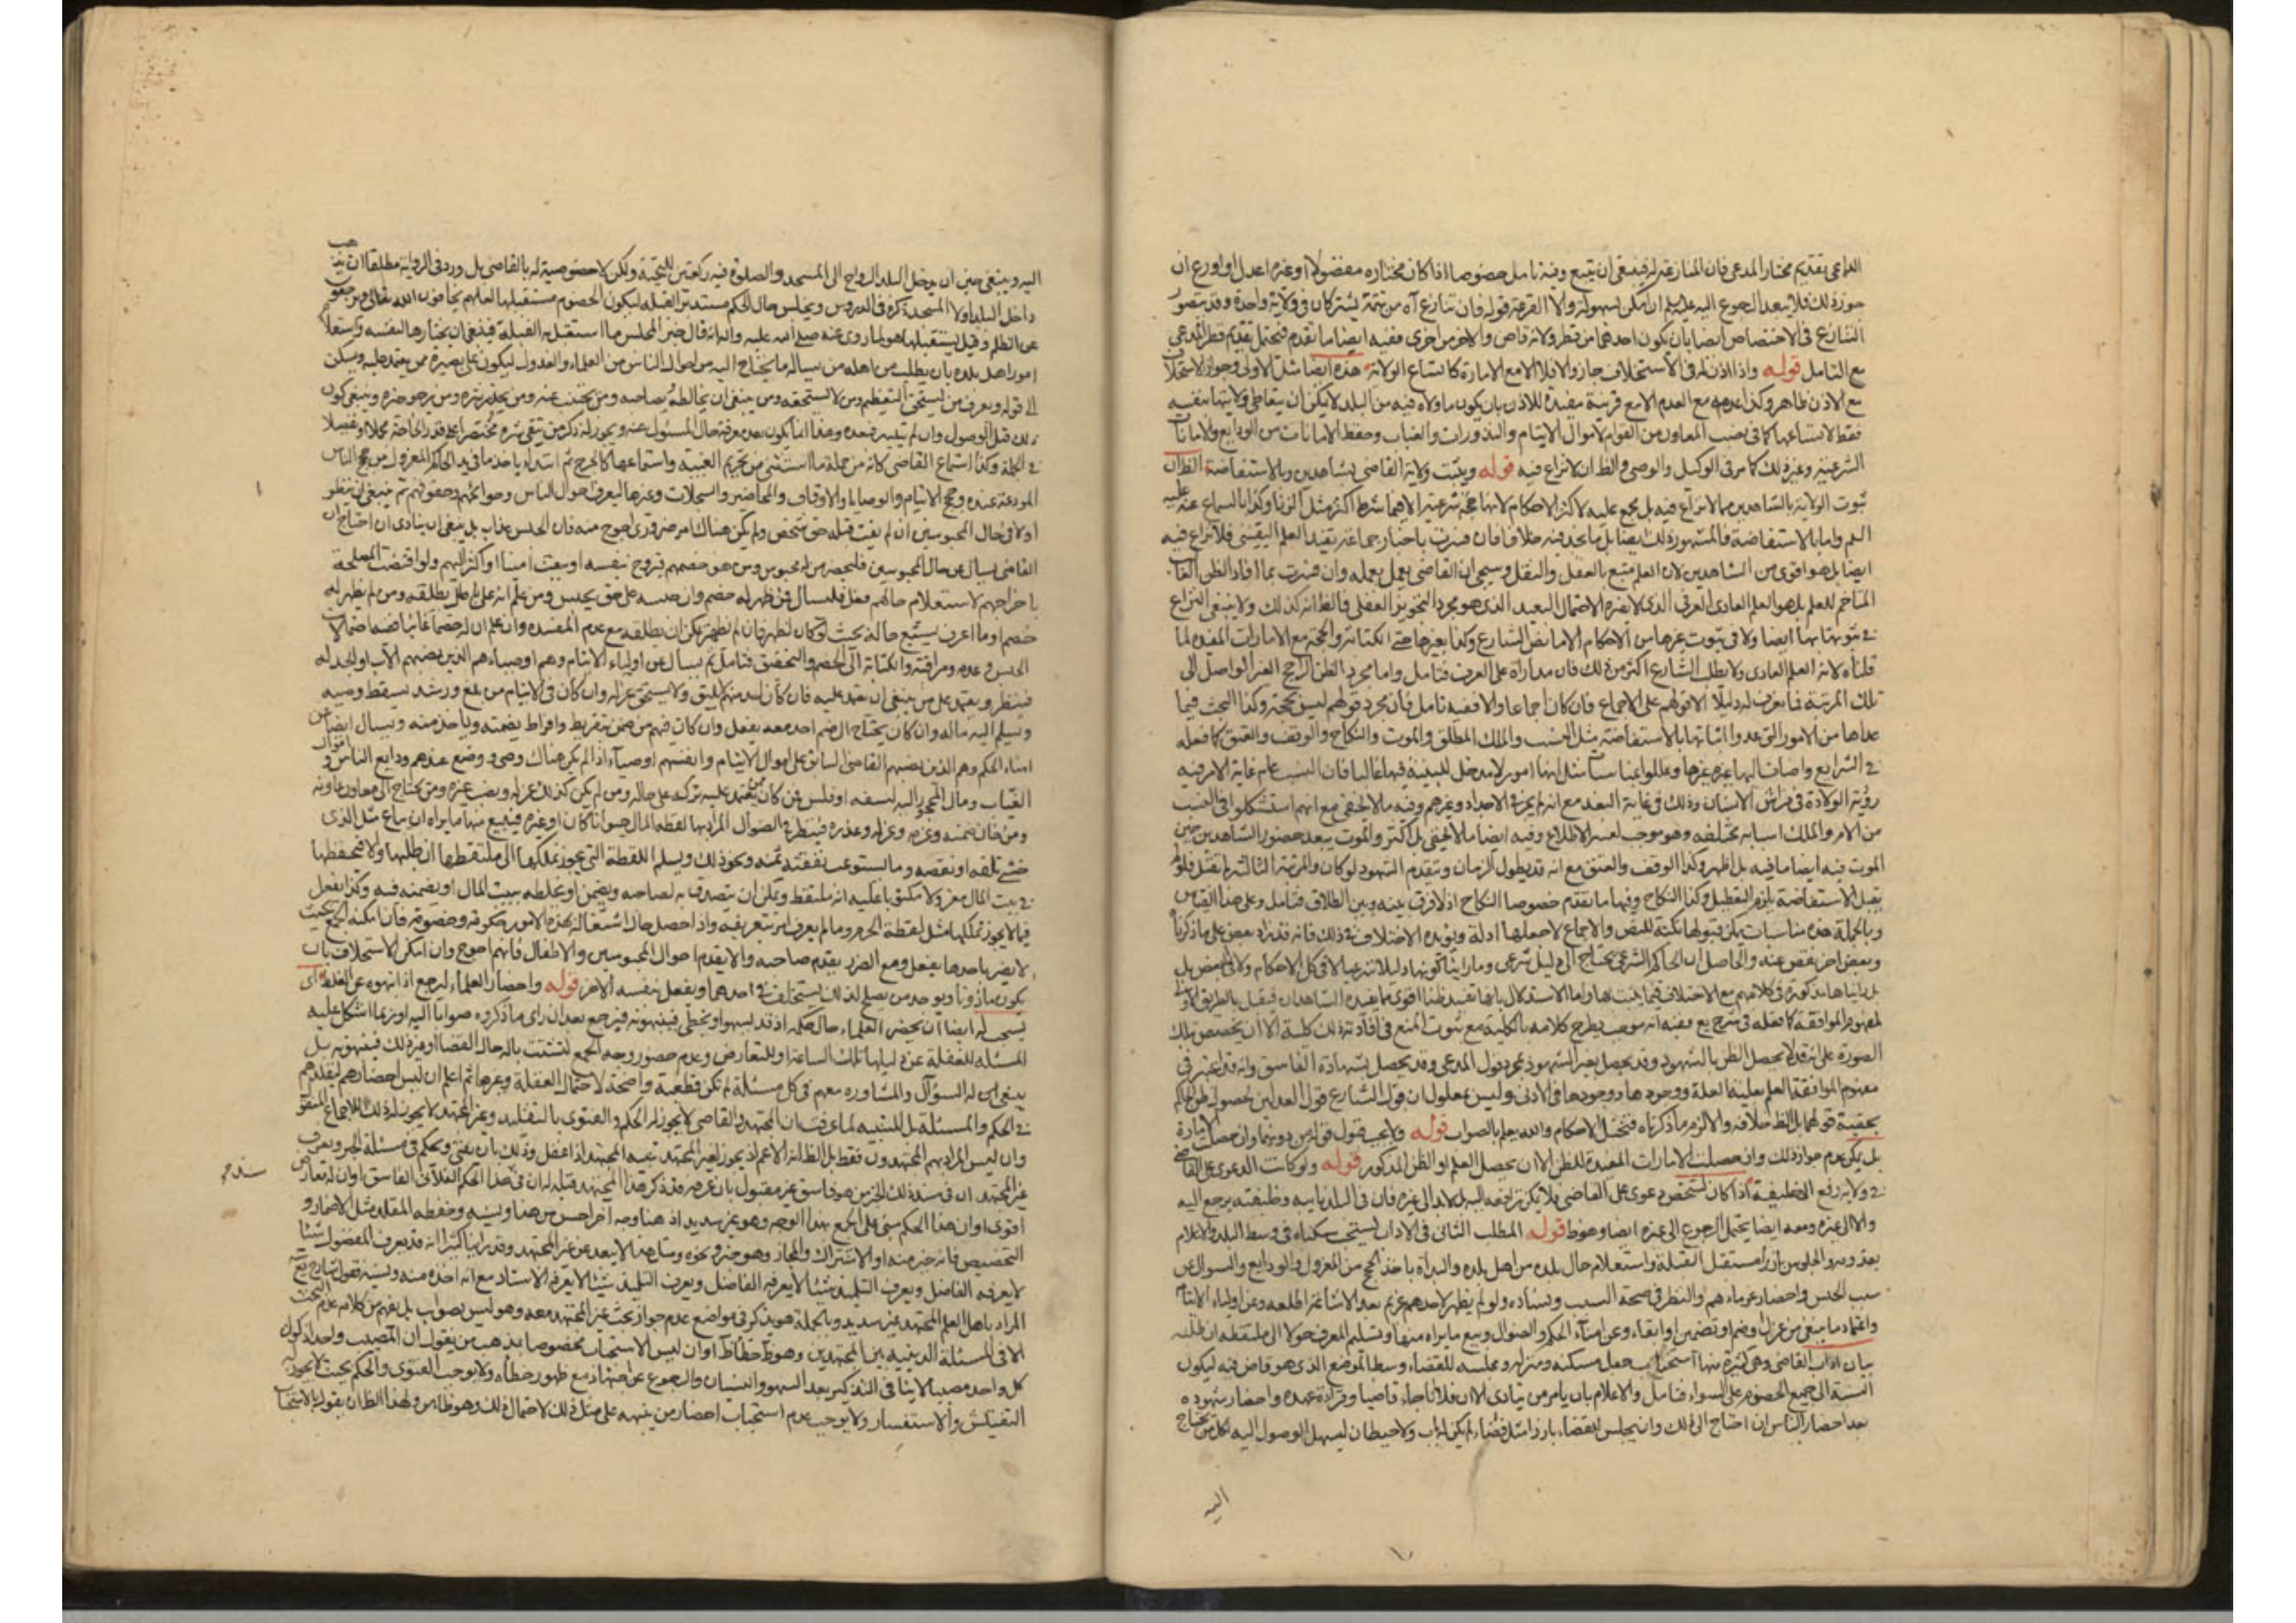 الداعى بتقديم مختار المدعى فان المنازع غيره فينبغى ان يتبع وفيه تامل خصوصا اذا كان مختاره مفضولا او غيره اعدل او اورع ان
جوز ذلك فلا يبعد الرجوع اليه عليه ان امكن بسهولة والا القرعة قوله فان تنازع آه من تتمة يشتركان فى ولاية واحدة وقد يتصور
التنازع فى الاختصاص ايضا بان يكون احدهما من قطر ولاية قاض والاخر من اخرى ففيه ايضا ما تقدم فيحتمل تقديم قطر المدعى
مع التامل قوله واذا اذن له فى الاستخلاف جاز والا فلا الا مع الامارة كاتساع الولاية هذه ايضا مثل الاولى وجواز الاستخلاف
مع الاذن ظاهر وكذا عدمه مع العدم الا مع قرينة مفيدة للاذن بان يكون ما ولاه فيه من البلد لا يمكن ان يتعاطى ولايتها بنفسه
فقط لاتساعها كما فى نصب المعاون من القوام لاموال الايتام والنذورات والغياب وحفظ الامانات من الودايع والامانات
الشرعية وغير ذلك كما مر فى الوكيل والوصى والظ ان لا نزاع فيه قوله ويثبت ولاية القاضى بشاهدين وبالاستفاضة الظ ان
ثبوت الولاية بالشاهدين مما لا نزاع فيه بل مجمع عليه لاكثر الاحكام لانها حجة شرعية الا فيما شرط اكثر مثل الزنا وكذا بالسماع عنه عليه
السم واما بالاستفاضة فالمشهور ذلك ايضا بل ما نجد فيه خلافا فان فسرت باخبار جماعة يفيد العلم اليقينى فلا نزاع فيه
ايضا بل هو اقوى من الشاهدين لان العلم متبع بالعقل والنقل وسيجئ ان القاضى يعمل بعلمه وان فسرت بما افاد الظن الغالب
المتاخم للعلم بل هو العلم العادى العرفى الذى لا يضره الاحتمال البعيد الذى هو مجرد التجويز العقلى فالظ انه كذلك ولا ينبغى النزاع
فى ثبوتها بها ايضا ولا فى ثبوت غيرها من الاحكام الا ما نص الشارع وكذا بغيرها حتى الكتابة والحجة مع الامارات المفيدة لما
قلناه لانه العلم العادى ولا يطلب الشارع اكثر من ذلك فان مداره على العرف فتامل واما مجرد الظن الراجح الغير الواصل الى
تلك المرتبة فما نعرف له دليلا الا قولهم على الاجماع فان كان اجماعا والا ففيه تامل فان مجرد قولهم ليس بحجة وكذا البحث فيما
عداها من الامور التى عدوا اثباتها بالاستفاضة مثل النسب والملك المطلق والموت والنكاح والوقف والعتق كما فعله
فى الشرايع واضاف اليها غيره غيرها وعللوا بمناسبات مثل انها امور لا مدخل للبينة فيها غالبا فان النسب عام غاية الامر فيه
رؤية الولادة فى فراش الانسان وذلك فى غاية البعد مع انه لم يجز فى الاجداد وغيرهم وفيه ما لا يخفى مع انهم استشكلوا فى النسب
من الام والملك اسبابه مختلفة وهو موجب لعسر الاطلاع وفيه ايضا ما لا يخفى بل اكثر والموت يبعد حضور الشاهدين حين
الموت فيه ايضا ما فيه بل اظهر وكذا الوقف والعتق مع انه قد يطول الزمان وتتقدم الشهود لو كان والمرتبة الثالثة لم تقبل فلو لم
يقبل الاستفاضة يلزم التعطيل وكذا النكاح وفيها ما تقدم خصوصا النكاح اذ لا فرق بينه وبين الطلاق فتامل وعلى هذا القياس
وبالجملة هذه مناسبات يمكن قبولها نكتة للنص والاجماع لا جعلها ادلة ويؤيده الاختلاف فى ذلك فانه قد زاد بعض على ما ذكرنا
وبعض اخر نقص عنه والحاصل ان الحاكم الشرعى يحتاج الى دليل شرعى وما راينا كونها دليلا شرعيا لا فى كل الاحكام ولا فى البعض بل
بل راينا ها مذكورة فى كلامهم مع الاختلاف فيما يثبت بها واما الاستدلال بانها تفيد ظنا اقوى مما يفيده الشاهدان فيقبل بالطريق الاولى
لمفهوم الموافقة كما فعله فى شرح يع ففيه انه موجب لطرح كلامه بالكلية مع ثبوت المنع فى افادته ذلك كلية الا ان يخصص بتلك
الصورة على انه قد لا يحصل الظن بالشهود وقد يحصل بغير الشهود بمجرد قول المدعى وقد يحصل بشهادة الفاسق وانه قد اعتبر فى
مفهوم الموافقة العلم بعلية العلة ووجودها ووجودها فى الادنى وليس بمعلول ان قول الشارع قول العدلين لحصول ظن الحاكم
بحقية قولهما بل الظ خلافه والا لزم ما ذكرناه فتختل الاحكام والله يعلم بالصواب قوله ولا يجب قبول قوله من دونهما وان حصلت الامارة
بل يمكن عدم جواز ذلك وان حصلت الامارات المفيدة للظن الا ان يحصل العلم او الظن المذكور قوله ولو كانت الدعوى على القاضى
فى ولاية رفع الى خليفته اذا كان لشخص دعوى على القاضى فلا يمكن ترافعه اليه بل لابد الى غيره فان فى البلد نايبه وخليفته يرجع اليه
والا الى غيره ومعه ايضا يحتمل الرجوع الى غيره ايضا وهو ظ قوله المطلب الثانى فى الاداب يستحب سكناه فى وسط البلد والاعلام
بقدومه والجلوس بارزا مستقبل القبلة واستعلام حال بلده من اهل بلده والبداة باخذ الحجج من المعزول والودايع والسؤال عن
سبب الحبس واحضار غرماءهم والنظر فى صحة السبب وفساده ولو لم يظهر لاحدهم غريم بعد الاشاعة اطلقه وعن اولياء الايتام
واعتماد ما ينبغى من عزل او ضم او تضمين او ابقاء وعن امناء الحكم والضوال وبيع ما يراه منها وتسليم المعرف حولا الى ملتقطه ان طلبه
بيان اداب القاضى وهى كثيرة منها استحباب جعل مسكنه ومنزله ومجلسه للقضاء وسط الموضع الذى هو قاض فيه ليكون
النسبة الى جميع الخصوم على السواء فتامل والاعلام بان يامر من ينادى الا ان فلانا جاء قاضيا وقراءة عهده واحضار شهوده
بعد احضار الناس ان احتاج الى ذلك وان يجلس للقضاء بارزا مثل فضاء لم يكن له باب ولا حيطان ليسهل الوصول اليه لكل من يحتاج
اليه
اليه وينبغى حين ان يدخل البلد الرواح الى المسجد والصلوة فيه ركعتين للتحية ولكن لا خصوصية له بالقاضى بل ورد فى الرواية مطلقا ان يذهب
داخل البلد اولا المسجد ذكره فى الدروس ويجلس حال الحكم مستدبر القبلة ليكون الخصوم مستقبلها لعلهم يخافون الله تعالى ويرجعون
عن الظلم وقيل يستقبلها هو لما روى عنه صلى الله عليه واله انه قال خير المجلس ما استقبل به القبلة فينبغى ان يختارها لنفسه واستعلام
امور اهل بلده بان يطلب من اهله من يساله ما يحتاج اليه من احوال الناس من العلماء والعدول ليكون على بصيرة ممن يعتمد عليه ويسكن
الى قوله ويعرف من يستحق التعظيم ومن لا يستحقه ومن ينبغى ان يخالطه ويصاحبه ومن يجتنب عنه ومن يحذر شره ومن يرجو خيره وينبغى كون
ذلك قبل الوصول وان لم يتيسر فبعده وهذا انما يكون بعد معرفة حال المسئول عنه ويجوز له ذكر من يتقى شره مختصرا على قدر الحاجة مجملا او تفصيلا
فى الجملة وكذا استماع القاضى كانه من جملة ما استثنى من تحريم الغيبة واستماعها كالجرح ثم ابتداه باخذ ما فى يد الحاكم المعزول من حجج الناس
المودعة عنده وحجج الايتام والوصايا والاوقاف والمحاضر والسجلات وغيرها ليعرف احوال الناس وحوائجهم وحقوقهم ثم ينبغى ان ينظر
اولا فى حال المحبوسين ان لم يفت قبله حق شخص ولم يكن هناك امر ضرورى احوج منه فان الحبس عذاب بل ينبغى ان ينادى ان احتاج ان
القاضى يسال عن حال المحبوسين فليحضر من له محبوس ومن هو خصمهم فيروح بنفسه او يبعث امينا او اكثر اليهم ولو اقتضت المصلحة
باخراجهم لاستعلام حالهم فعل فليسال فمن ظهر له خصم وان حبسه على حق يحبس ومن علم انه على باطل يطلقه ومن لم يظهر له
خصم وما اعرف يتتبع حاله بحث لو كان لظهر فان لم يظهر يمكن ان يطلقه مع عدم المفسدة وان علم ان له خصما غائبا
الحبس وعدمه ومرافقته والكتابة الى الخصم والتحقيق فتامل ثم يسال عن اولياء الايتام وهم اوصياءهم الذين نصبهم الاب او الجد له
فينظر ويعتمد على من ينبغى ان يعتمد عليه فان كان احد منهم لا يليق ولا يستحق عزله وان كان فى الايتام من بلغ ورشد يسقط وصيه
ويسلم اليه ماله وان كان يحتاج الى ضم احد معه يفعل وان كان فيهم من ضمن بتفريط وافراط يضمنه وياخذ منه ويسال ايضا عن
امناء الحكم وهم الذين نصبهم القاضى السابق على اموال الايتام وانفسهم اوصياء اذا لم يكن هناك وصى ووضع عندهم ودايع الناس واموال
الغياب ومال المحجور اليه لسفه او فلس فمن كان يعتمد عليه تركه على حاله ومن لم يكن كذلك عزله ونصب غيره ومن يحتاج الى معاون عاونه
ومن خان ضمنه وغرمه وعزله وعذره فينظر فى الضوال المراد بها لقطة المال حيوانا كان او غيره فيبيع منها ما يراه ان يباع مثل الذى
خشى تلفه او نقصه وما يستوعب نفقته ثمنه ونحو ذلك ويسلم اللقطة التى يجوز تملكها الى ملتقطها ان طلبها والا فيحفظها
فى بيت المال معزولا مكتوبا عليه انه ملتقط ويمكن ان يتصدق به لصاحبه ويضمن او يخلطه ببيت المال او يضمنه فيه وكذا يفعل
فيما لا يجوز تملكها مثل لقطة الحرم وما لم يعرف لم يتم تعريفه واذا حصل حال اشتغاله بهذه الامور حكومة وخصومة فان امكنه الجمع بحيث
لا يضر باحدهما يفعل ومع الضرر يقدم صاحبه والا يقدم احوال المحبوسين والاطفال فانهم احوج وان امكن الاستخلاف بان
يكون ماذونا ويوجد من يصلح لذلك يستخلف فى احدهما ويفعل بنفسه الاخر قوله واحضار العلماء ليرجع اذا نبهوه عن الغلط اى
يستحب له ايضا ان يحضر العلماء حال حكمه اذ قد يسهو او يخطى فينبهونه فيرجع بعد ان راى ما ذكروه صوابا اليه او ربما اشكل عليه
المسئلة للغفلة عن دليلها تلك الساعة او للتعارض وعدم حضور وجه الجمع لتشتت باله حال القضا او غير ذلك فينبهونه بل
ينبغى ان له السؤال والمشاورة معهم فى كل مسئلة لم تكن قطعية واضحة لاحتمال الغفلة وغيرها ثم اعلم ان ليس احضارهم ليقلدهم
فى الحكم والمسئلة بل للتنبيه لما عرفت ان المجتهد والقاضى لا يجوز له الحكم والفتوى بالتقليد وغير المجتهد لا يجوز له ذلك للاجماع المنقول
وان ليس المراد بهم المجتهدون فقط بل الظ انه الاعم اذ يجوز لغير المجتهد تنبيه المجتهد اذا غفل وذلك بان يفتى ويحكم فى مسئلة الجرو يعرف
غير المجتهد ان فى سند ذلك الخبر من هو فاسق غير مقبول بان عرفه قد ذكر هذا المجتهد قبله ان فى هذا الحكم الفلانى الفاسق او ان له تعارض
اقوى او ان هذا الحكم مبنى على الجمع بهذا الوجه وهو غير سديد اذ هنا وجه آخر احسن من هذا ونسيه وحفظه المقلد مثل الاضمار و
التخصيص فانه خير منه او الاشتراك والمجاز وهو خير ونحوه ومثل هذا لا يبعد عن غير المجتهد وقد راينا كثيرا انه قد يعرف المفضول شيئا
لا يعرفه الفاضل ويعرف التلميذ شيئا لا يعرفه الاستاد مع انه اخذه منه ونسيه فقول شارح يع
المراد باهل العلم المجتهد غير سديد وبالجملة هو يذكر فى مواضع عدم جواز بحث غير المجتهد معه وهو ليس بصواب بل يفهم من كلامه عدم البحث
الا فى المسئلة الدينية بين المجتهدين وهو ظ خطاء ظ او ان ليس الاستحباب مخصوصا بمذهب من يقول ان المصيب واحد اذ كون
كل واحد مصيبا لا ينافى التذكير بعد السهو والنسيان والرجوع عن اجتهاد مع ظهور خطأه ولا يوجب الفتوى والحكم بحيث لا يجوز له
التفتيش والاستفسار ولا يوجب عدم استحباب احضار من ينبهه على مثل ذلك لاحتمال ذلك وهو ظاهر ولهذا الظ ان يقول بالاستحباب